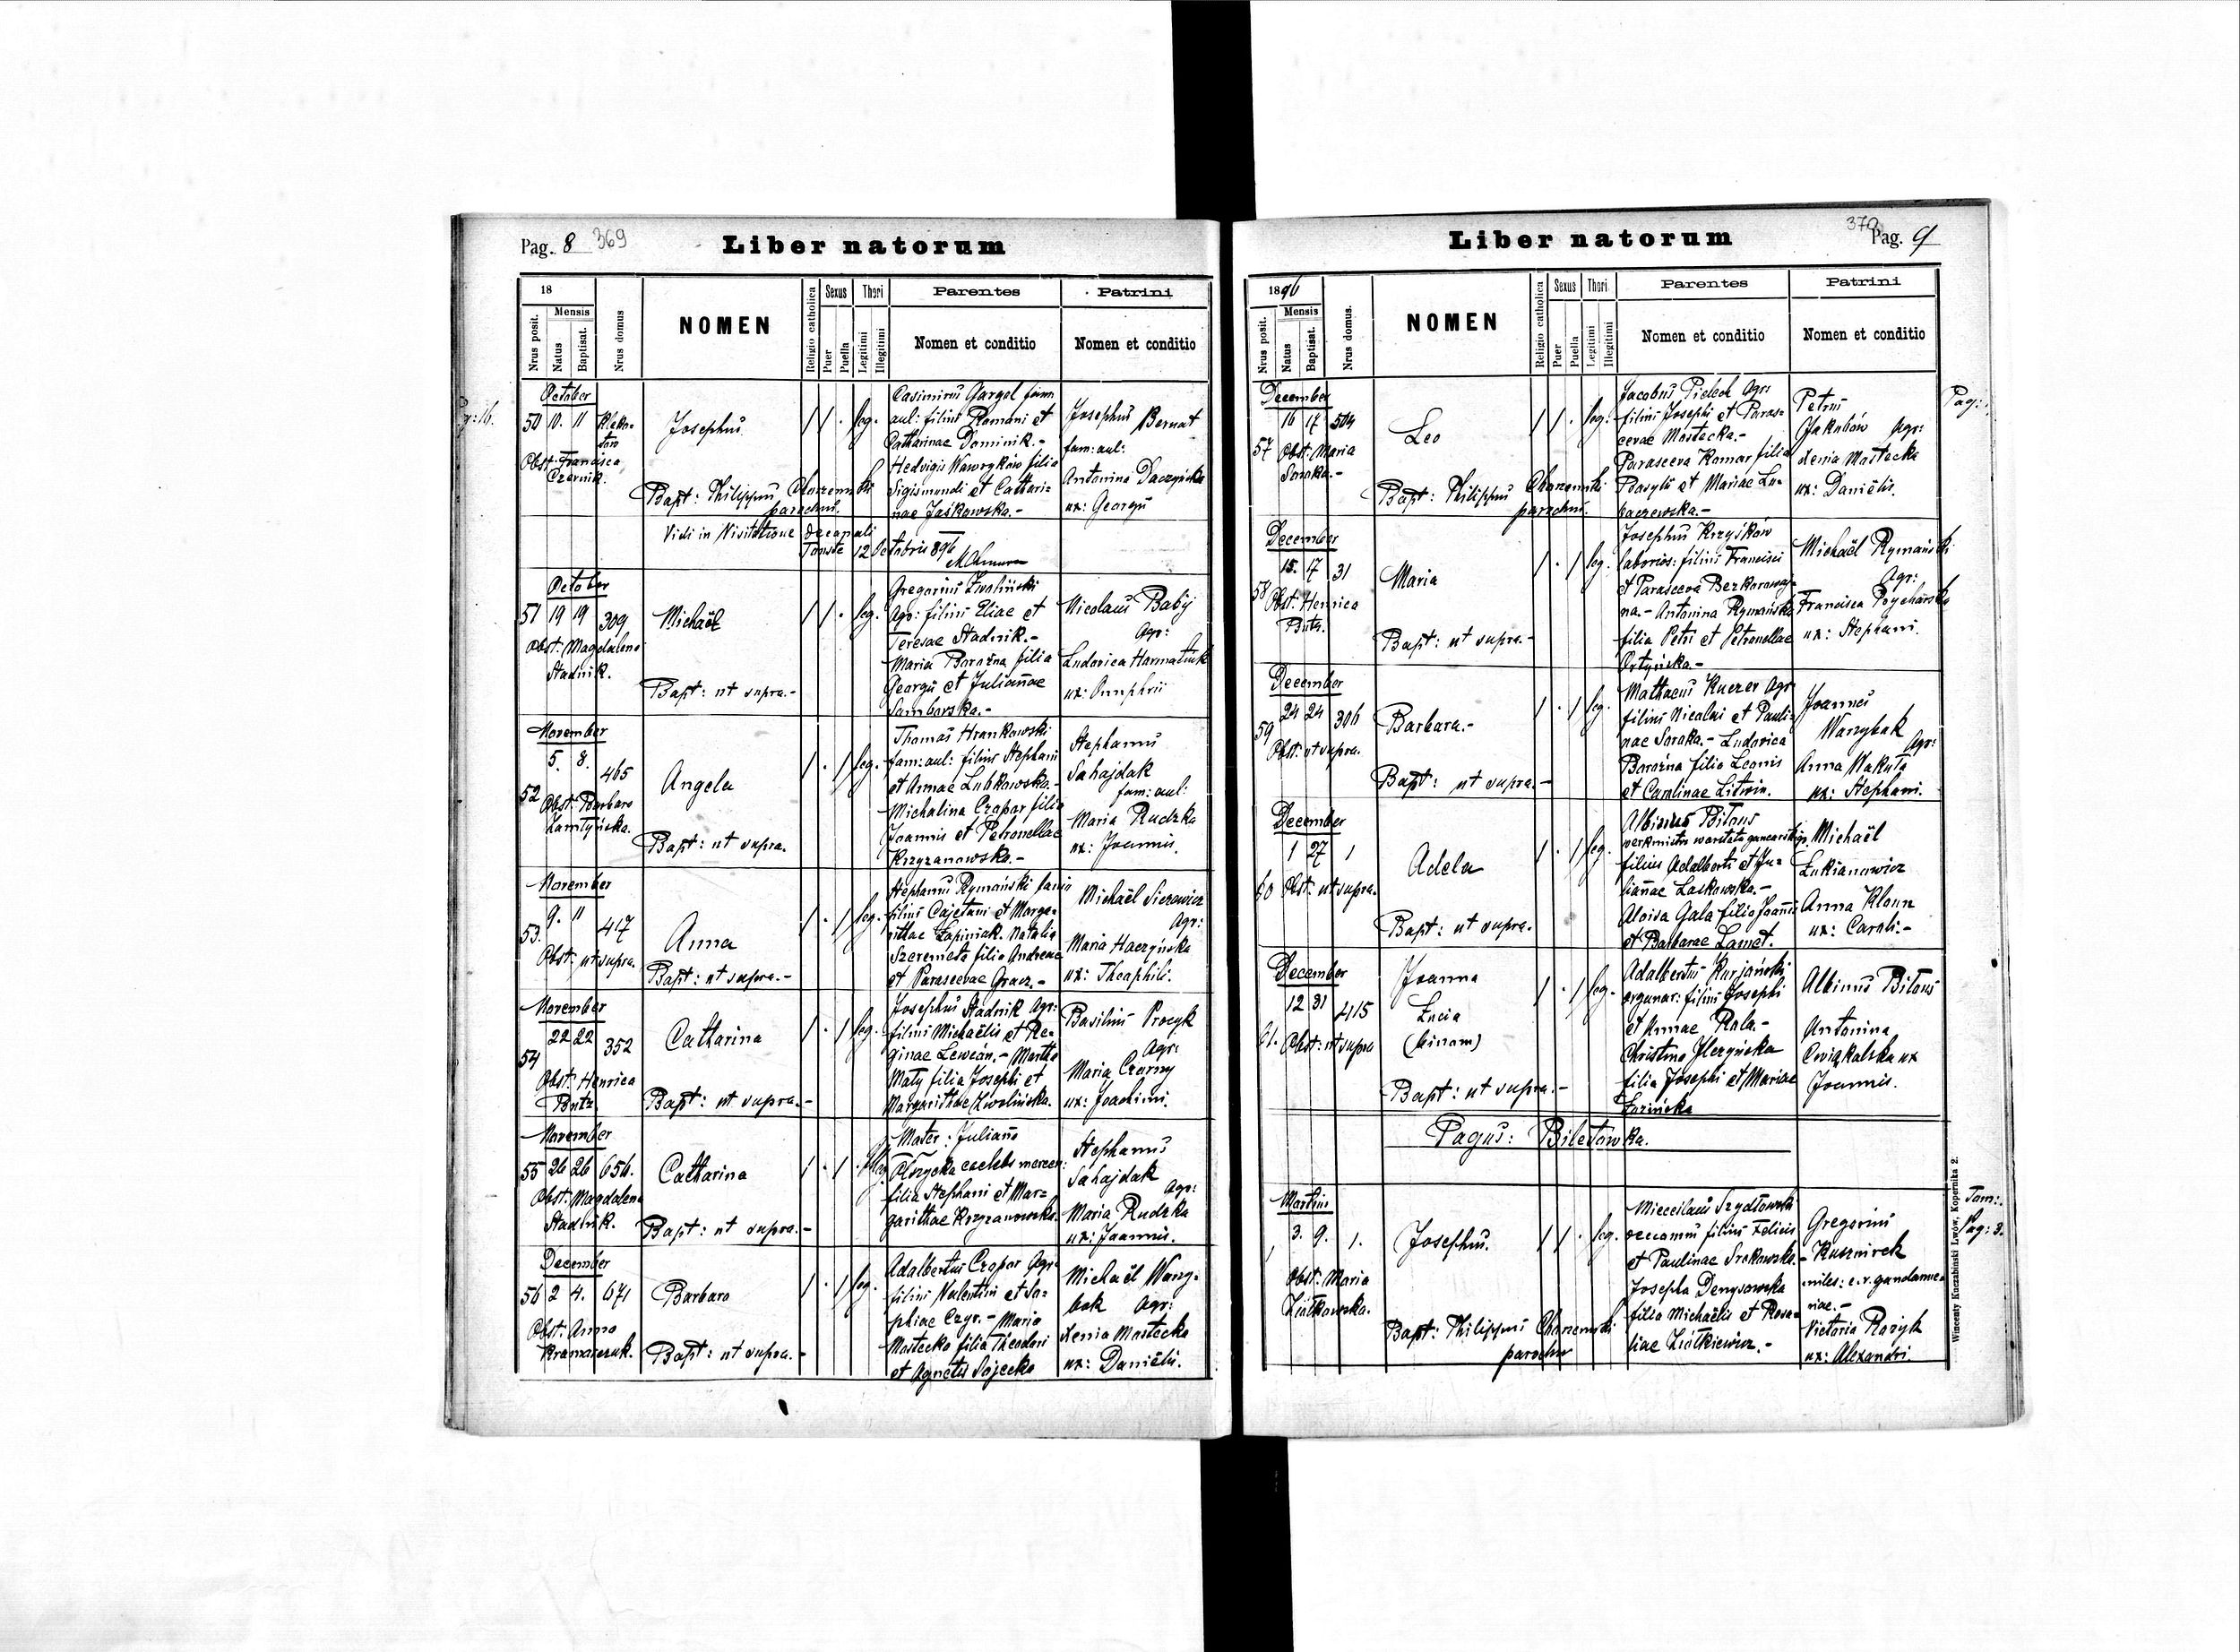 Pag. 8 369
Liber natorum
18
Mensis
Nrus posit.
Natus
Baptisat.
Nrus domus
NOMEN
Religio catholica
Sexus
Puer
Puella
Thori
Legitimi
Illegitimi
Parentes
Nomen et conditio
Patrini
Nomen et conditio
October
50 10. 11
Obst: Francisca
Czernik.
Josephus
Bapt: Philippus Charzemski
parochus.
/ / . leg.
Casimirus Gargol fam
aul: filius Romani et
Catharinae Dominik.-
Hedvigis Wawryków filia
Sigismundi et Cathari=
nae Jaśkowska.-
Josephus Bernat
fam: aul:
Antonina Daczyńska
ux: Georgii
Vidi in Visitatione decanali
Touste 12 Octobris 896
October
51 19 19 309
Obst: Magdalena
Stadnik.
Michaël
Bapt: ut supra.-
/ / . leg.
Gregorius Zwoliński
Agr: filius Eliae et
Teresae Stadnik.-
Maria Barożna filia
Georgii et Julianae
Samborska.-
Nicolaus Babij
Agr:
Ludovica Harmatiuk
ux: Onuphrii
November
52 5. 8. 465
Obst: Barbara
Zamtyńska.
Angela
Bapt: ut supra.
/ . / leg.
Thomas Hrankowski
fam: aul: filius Stephani
et Annae Lubkowska.-
Michalina Czopor filia
Joannis et Petronellae
Krzyzanowska.-
Stephanus
Sahajdak
fam: aul:
Maria Rudzka
ux: Joannis.
November
53. 9. 11 417
Obst: ut supra.
Anna
Bapt: ut supra.-
/ . / leg.
Stephanus Rymański
filius Cajetani et Marga=
rithae Łapiniak. Natalia
Szeremeta filia Andreae
et Parascevae Gracz.-
Michaël Sierowicz
Agr:
Maria Haczyńska
ux: Theophili.
November
54 22 22 352
Obst: Henrica
Butz.
Catharina
Bapt: ut supra.-
/ . / leg.
Josephus Stadnik Agr:
filius Michaëlis et Re=
ginae Lewcún.- Martha
Mały filia Josephi et
Margarithae Zwolińska.
Basilius Procyk
Agr:
Maria Czarny
ux: Joachimi.
November
55 26 26 656.
Obst: Magdalena
Stadnik.
Catharina
Bapt: ut supra.-
/ . / . illeg.
Mater: Juliana
Olszycka caelebs mercen:
filia Stephani et Mar=
garithae Krzyzanowska.
Stephanus
Sahajdak
Agr:
Maria Rudzka
ux: Joannis.
December
56 2 4. 671
Obst: Anna
Kramarczuk.
Barbara
Bapt: ut supra.-
/ . / leg.
Adalbertus Czopor Agr:
filius Valentini et So=
phiae Czyr.- Maria
Mostecka filia Theodori
et Agnetis Sajecka
Michaël Warzy=
bok Agr:
Xenia Mostecka
ux: Daniëlis.
370 Pag. 9
Liber natorum
1896
Mensis
Nrus posit.
Natus
Baptisat.
Nrus domus.
NOMEN
Religio catholica
Sexus
Puer
Puella
Thori
Legitimi
Illegitimi
Parentes
Nomen et conditio
Patrini
Nomen et conditio
December
57 16 17 504
Obst: Maria
Soroka.-
Leo
Bapt: Philippus Charzemski
parochus.
/ / . leg:
Jacobus Pielech Agr:
filius Josephi et Paras=
cevae Mostecka.-
Parasceva Komar filia
Basylii et Mariae Łu=
kaczewska.-
Petrus
Jakubów Agr:
Xenia Mostecka
ux: Daniëlis.
Pag:
December
58 15. 17 31
Obst: Henrica
Butz.
Maria
Bapt: ut supra.-
/ . / leg.
Josephus Krzyśków
laborios: filius Francisci
et Parasceva Bezkorowaj=
na.- Antonina Rymańska
filia Petri et Petronellae
Ortyńska.-
Michaël Rymański
Agr:
Francisca Prycharska
ux: Stephani.
December
59 24 24 306
Obst: ut supra.
Barbara.-
Bapt: ut supra.-
/ . / leg.
Mathaeus Kuczer Agr
filius Nicolai et Pauli=
nae Soroka.- Ludovica
Barożna filia Leonis
et Carolinae Litwin.
Joannes
Warzybok
Agr:
Anna Wakuła
ux: Stephani.
December
60 1 27 1
Obst: ut supra.
Adela
Bapt: ut supra.
/ . / leg.
Albinus Bitous
werkmistrz warstatu garncarskiego,
filius Adalberti et Ju=
lianae Laskowska.-
Aloisa Gala filia Joannis
et Barbarae Lamet.
Michaël
Łukianowicz
Anna Klonn
ux: Caroli.-
December
61. 12 31 415
Obst: ut supra
Joanna
Lucia
(binom)
Bapt: ut supra.-
/ . / leg.
Adalbertus Kurjański
organar: filius Josephi
et Annae Rola.-
Christina Ilczyńska
filia Josephi et Mariae
Łozińska
Albinus Bitous
Antonina
Cwiąkalska ux
Joannis.
Pagus: Biletówka.
Martius
1 3. 9. 1.
Obst: Maria
Ziółkowska.
Josephus.
Bapt: Philippus Charzemski
parochus
/ / . leg.
Miecislaus Szydłowski
oeconomus filius Felicis
et Paulinae Srokowska.-
Josepha Denysowska
filia Michaëlis et Rosa=
liae Ziółkiewicz.-
Gregorius
Kusznirek
miles: c. r. gendarme=
riae.-
Victoria Rozyk
ux: Alexandri.
Tom:
Pag: 3.
Wincenty Kuczabiński Lwów, Kopernika 2.